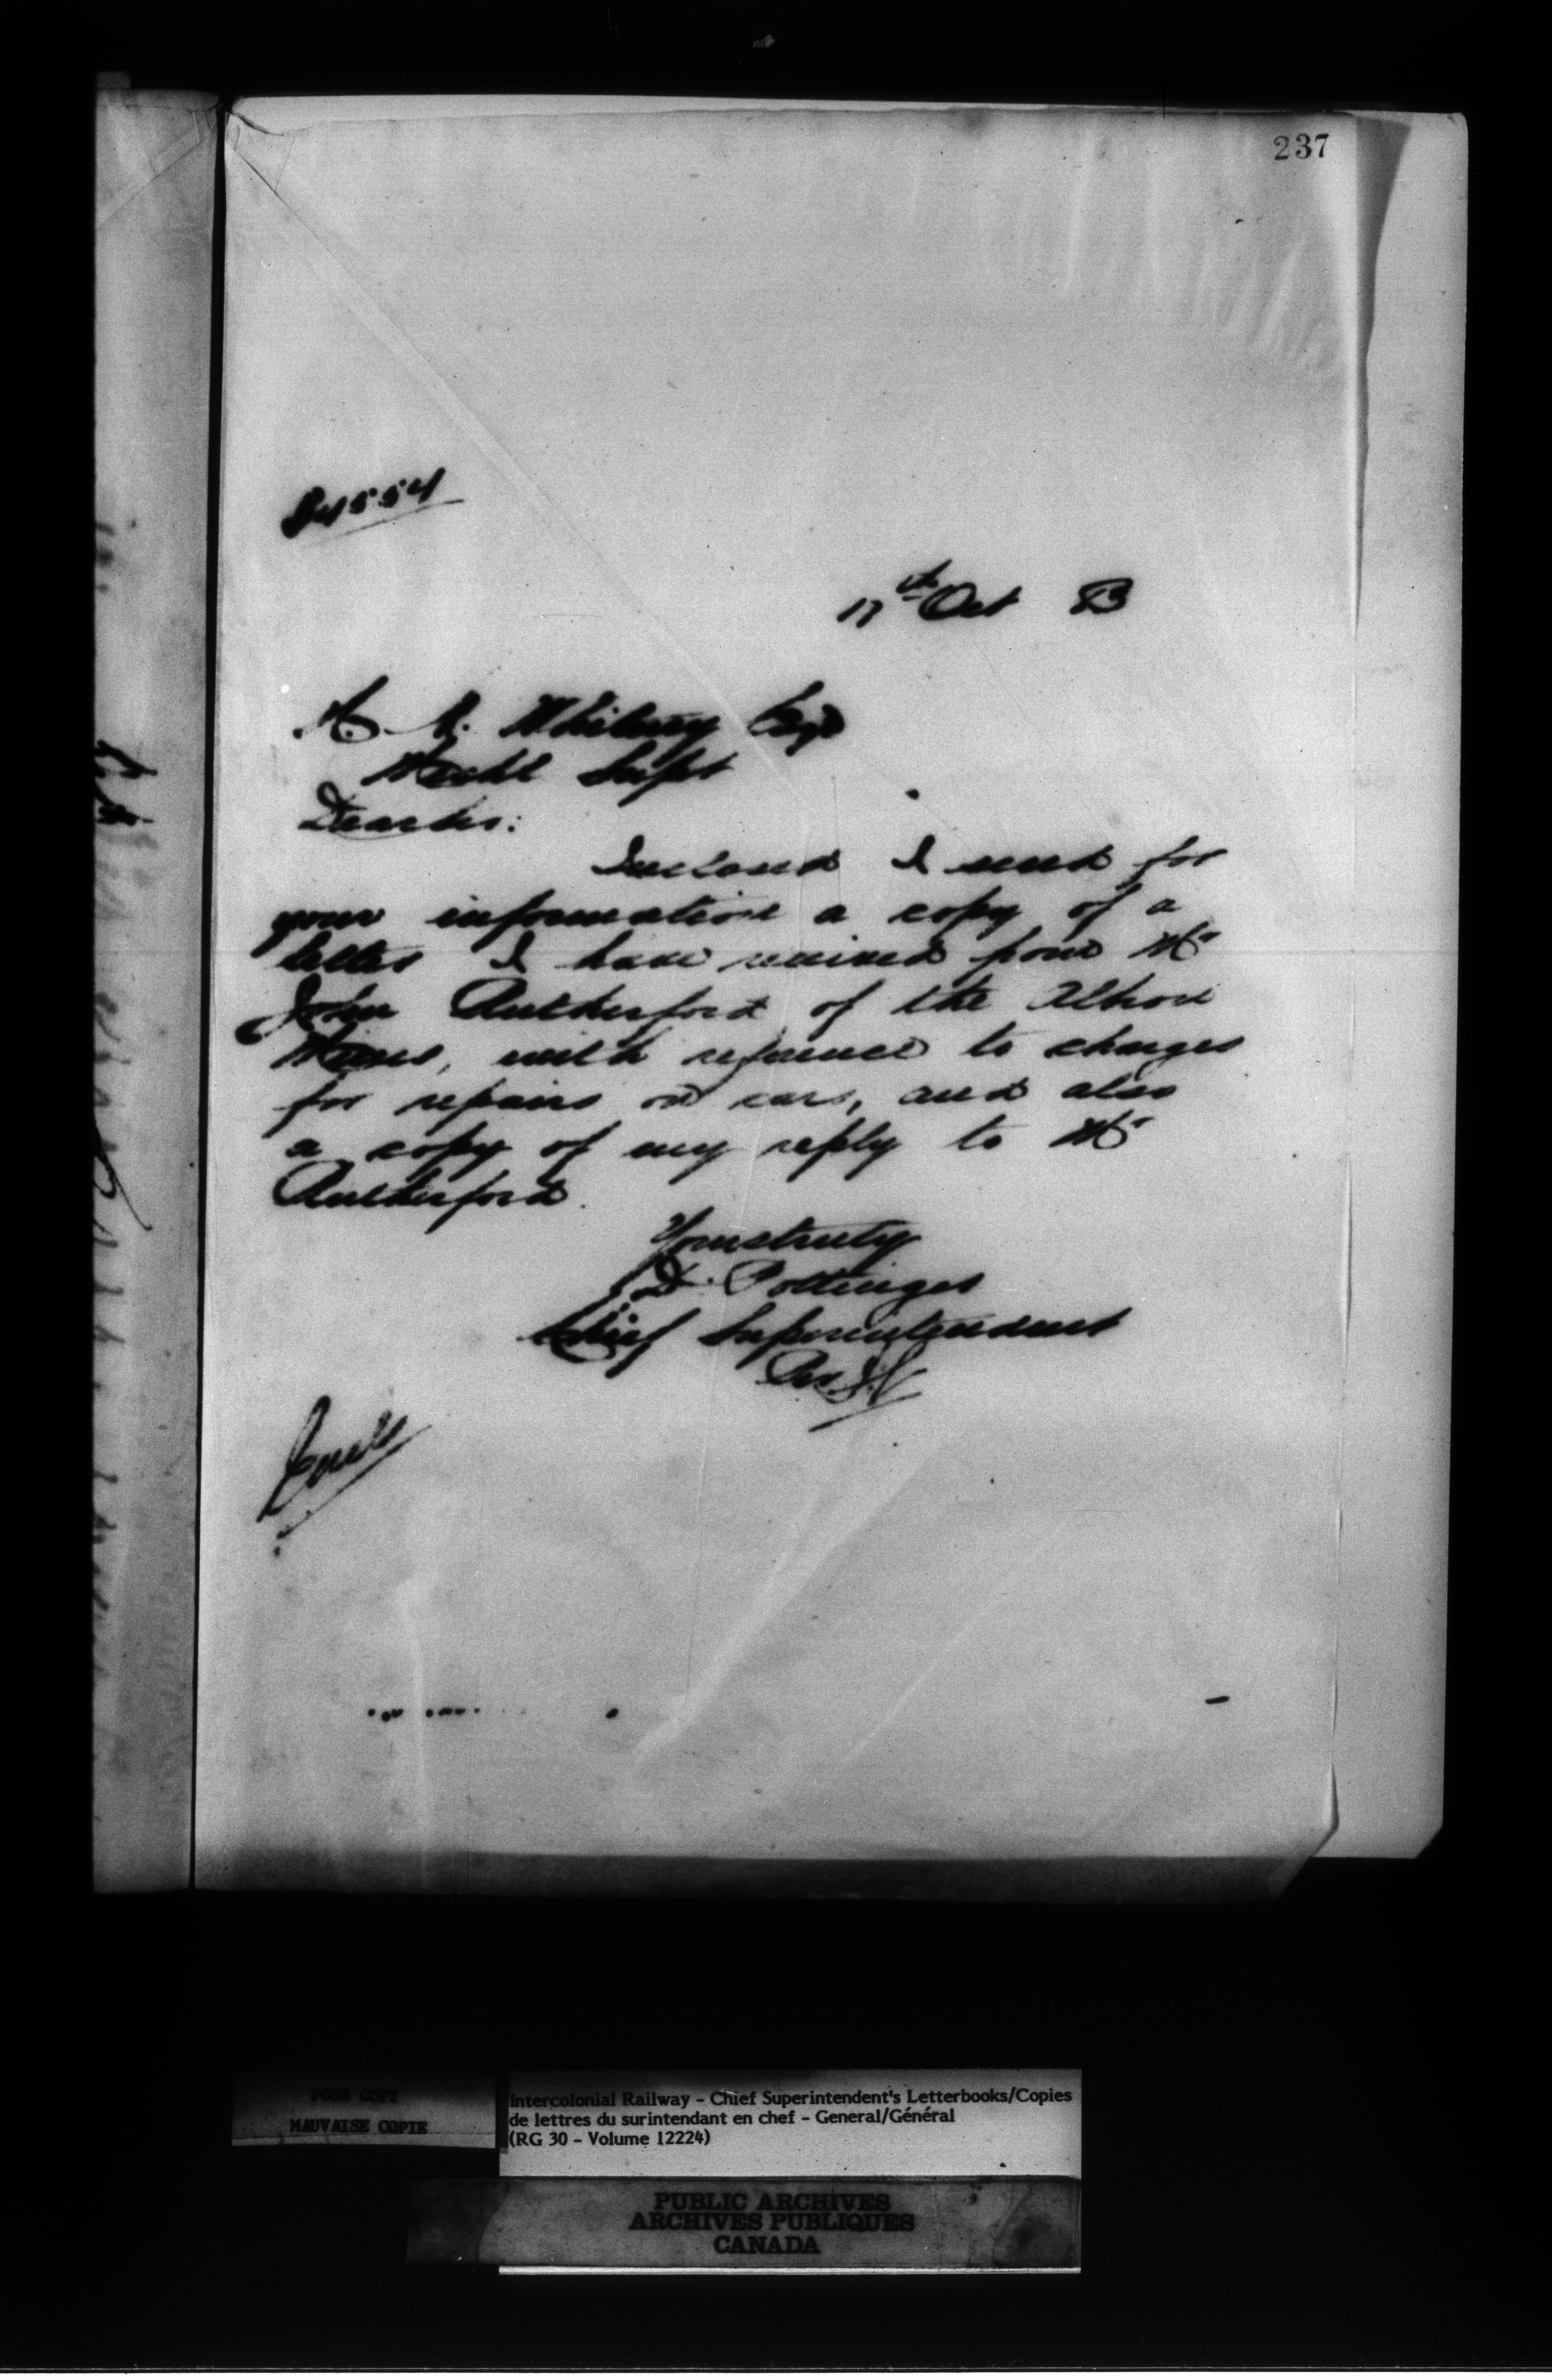 237
84554
17th Oct 83
H. A. Whitney Esqr
Mechl Supt
Dear Sir:
Inclosed I send for
your information a copy of a
letter I have received from Mr
John Rutherford of the Albion
Mines, with reference to charges
for repairs on cars, and also
a copy of my reply to Mr
Rutherford.
Yours truly
D. Pottinger
Chief Superintendent
Per
POOR COPY
MAUVAISE COPIE
Intercolonial Railway - Chief Superintendent's Letterbooks/Copies
de lettres du surintendant en chef - General/Général
(RG 30 - Volume 12224)
PUBLIC ARCHIVES
ARCHIVES PUBLIQUES
CANADA